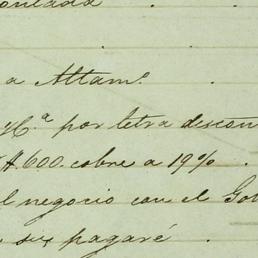 a Altamo
por letra descon
600. cobre a 19%
l negocio con el Go
six pagaré